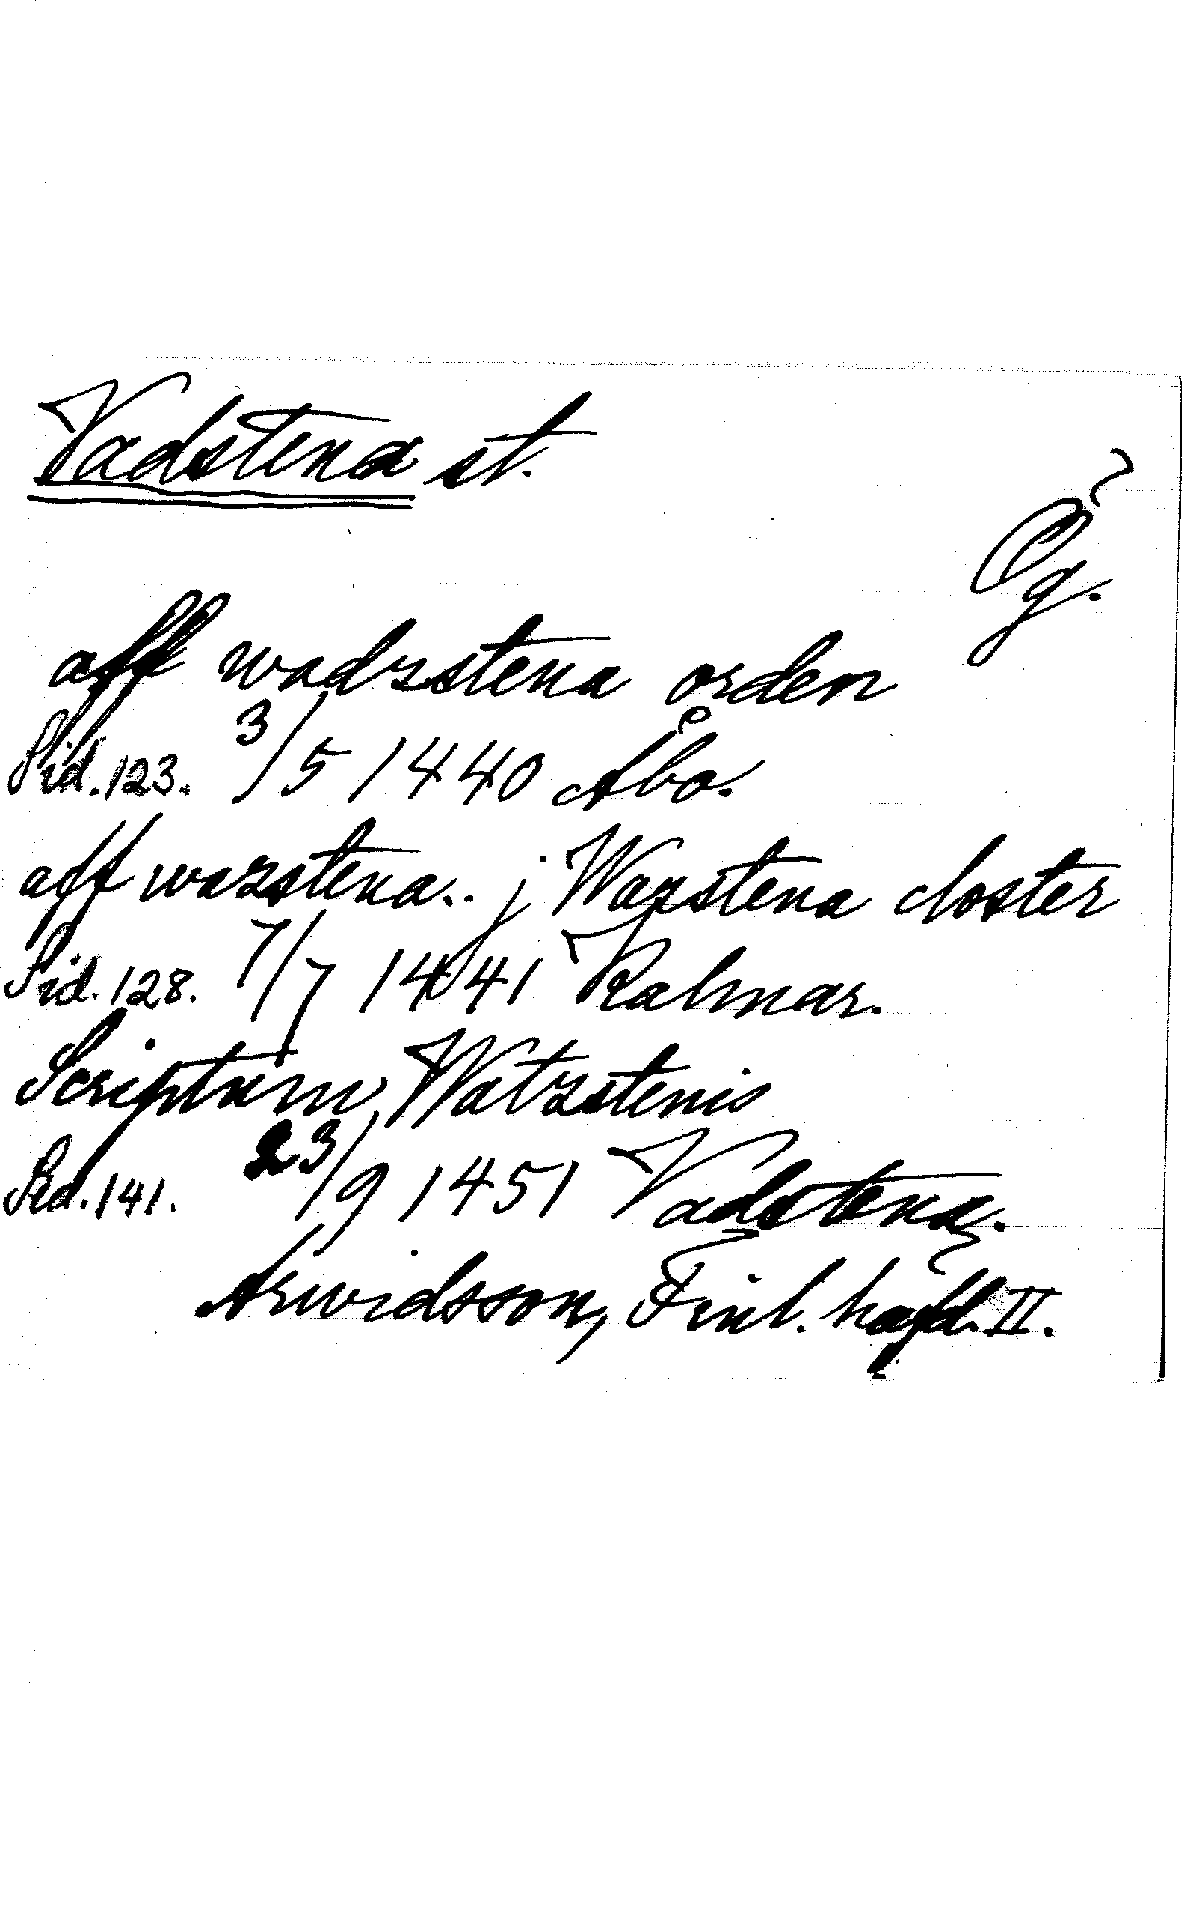 Vadstena st.
Ög.
aff wadzstena orden
Sid. 123. 3/5 1440 Åbo.
aff wazstena.. j Wazstena closter
Sid. 128. 7/7 1441 Kalmar.
Scriptum Watzstenis
Sid. 141. 23/9 1451 Vadstena.
Arwidsson, Finl. häfd. II.